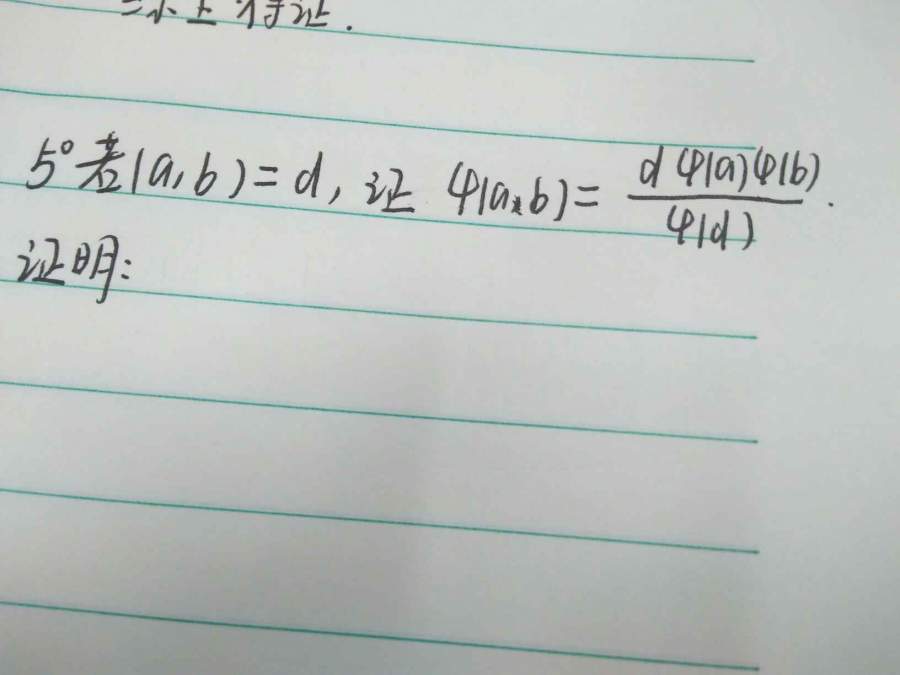 二求上得证.
5° 若(a,b)=d, 证 φ(a*b)= dφ(a)φ(b) / φ(d) .
证明: